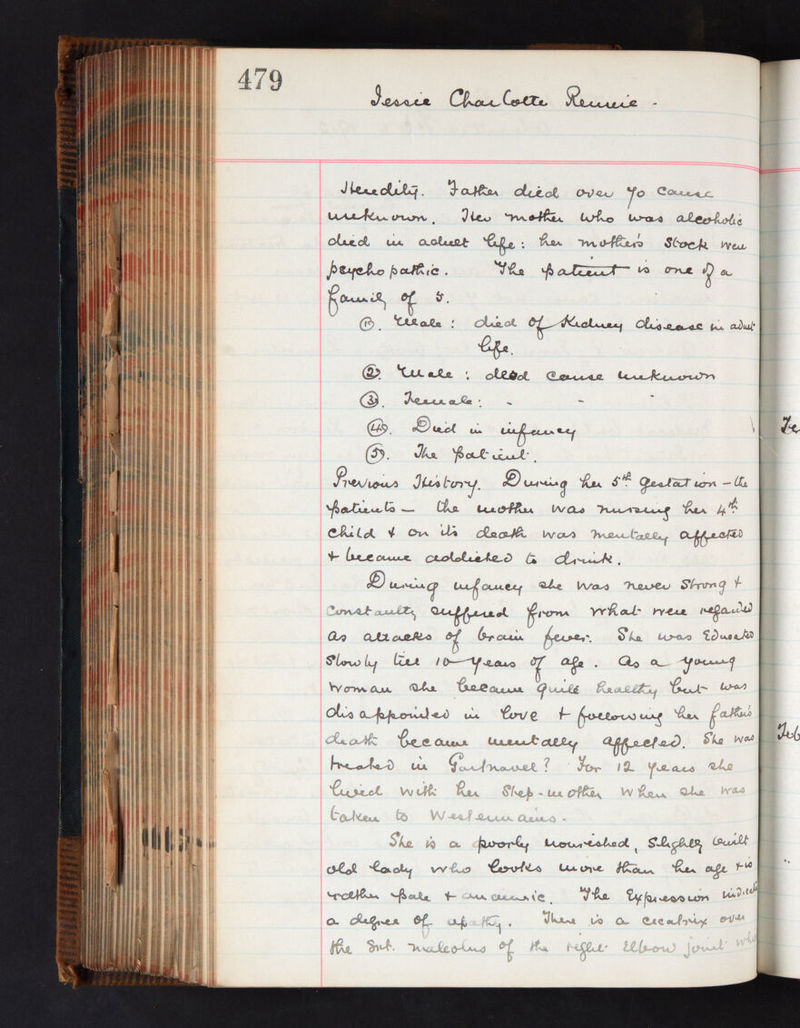 479
Jessie Charlotte Rennie -
Heredity. Father died over 70 cause
unknown. Her mother who was alcoholic
died in adult life: her mother's stock were
psychopathic. The patient is one of a
family of 5.
①. Male: died of Kidney disease in adult
life.
②. Male: dead cause unknown
③. Female: - - -
④. Died in infancy
⑤. The Patient.
Previous History. During her 5th gestation - the
patients - the mother was nursing her 4th
child & on its death was mentally affected
& became addicted to drink.
During infancy she was never strong &
constantly suffered from what were regarded
as attacks of brain fever. She was Educated
slowly till 10 years of age. As a young
woman she became quite healthy but was
disappointed in love & following her father's
death became mentally affected. She was
treated in Gartnavel? For 12 years she
lived with her Step-mother when she was
taken to Westermains.
She is a poorly nourished, slightly built
old lady who looks more than her age & is
rather pale & anaemic. The Expression indicates
a degree of apathy. There is a cicatrix over
the Int. maleolus of the right Elbow joint